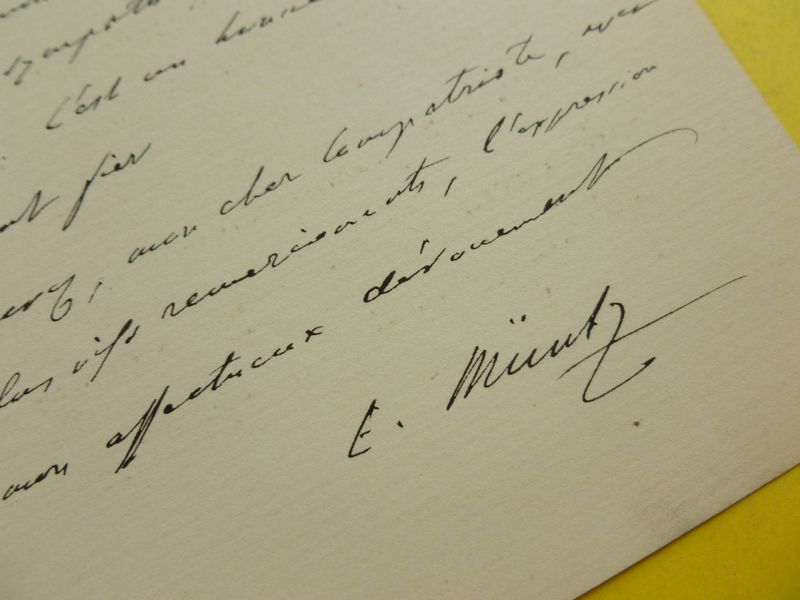 sympath
C'est un
nt fier
mon cher Compatriote, avec
plus vifs remerciements, l'expression
mon affectueux dévouement
E. Müntz